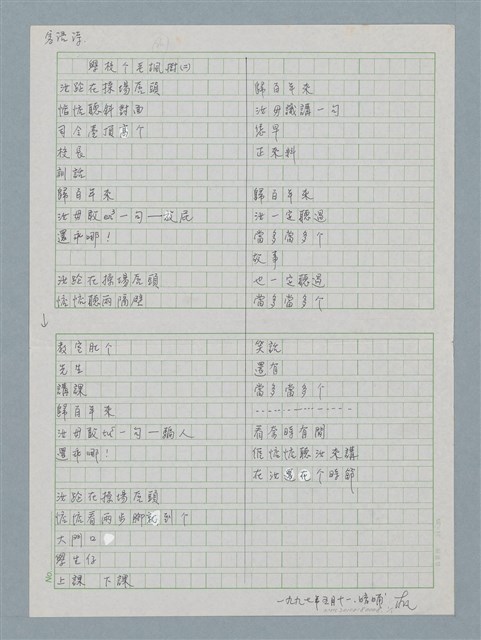 客語詩
學校个毛楓樹(二)
汝跍在操場唇頭
恬恬聽斜對面
司令臺頂高个
校長
訓話
歸百年來
汝毋敢 一句——放屁
還

汝跍在操場唇頭
恬恬聽兩隔壁
↓
教室肚个
先生
講課
歸百年來
汝毋敢 一句——騙人
還

汝跍在操場唇頭
恬恬看兩步腳就到个
大門口
學生仔
上課 下課

歸百年來
汝毋識講一句
恁早
正來料

歸百年來
汝一定聽過
當多當多个
故事
也一定聽過
當多當多个
笑話
還有
當多當多个
----------------
看奈時有閒
𠊎恬恬聽汝來講
在汝還在个時節

一九九七年五月十一.暗晡
No.